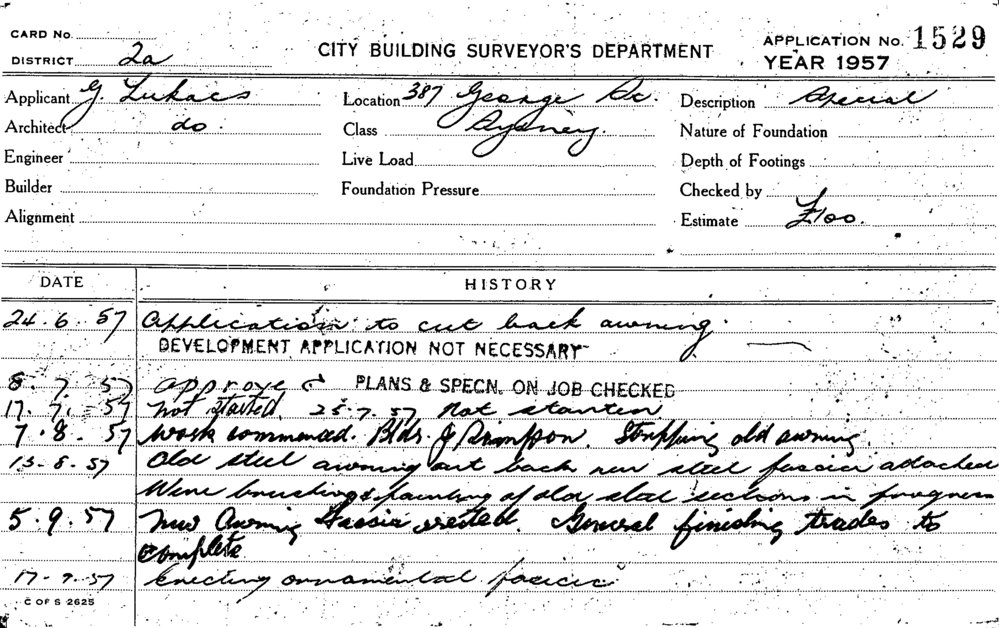 CARD No.
DISTRICT 2a
CITY BUILDING SURVEYOR'S DEPARTMENT
APPLICATION No. 1529
YEAR 1957
Applicant G. Lukacs
Location 387 George St.
Description Special
Architect do.
Class Sydney.
Nature of Foundation
Engineer
Live Load
Depth of Footings
Builder
Foundation Pressure
Checked by
Alignment
Estimate £100.
DATE
HISTORY
24.6.57 Application to cut back awning
DEVELOPMENT APPLICATION NOT NECESSARY
8.7.57 approved PLANS & SPECN. ON JOB CHECKED
17.7.57 Not started. 25.7.57 Not started
7.8.57 Work commenced. Bldr. J Simpson. Stripping old awning.
13.8.57 Old steel awning cut back new steel fascia attached
Wire brushing & painting of old steel sections in progress
5.9.57 New Awning Fascia erected. General finishing trades to
complete
17.9.57 Erecting ornamental fascia
C OF S 2625